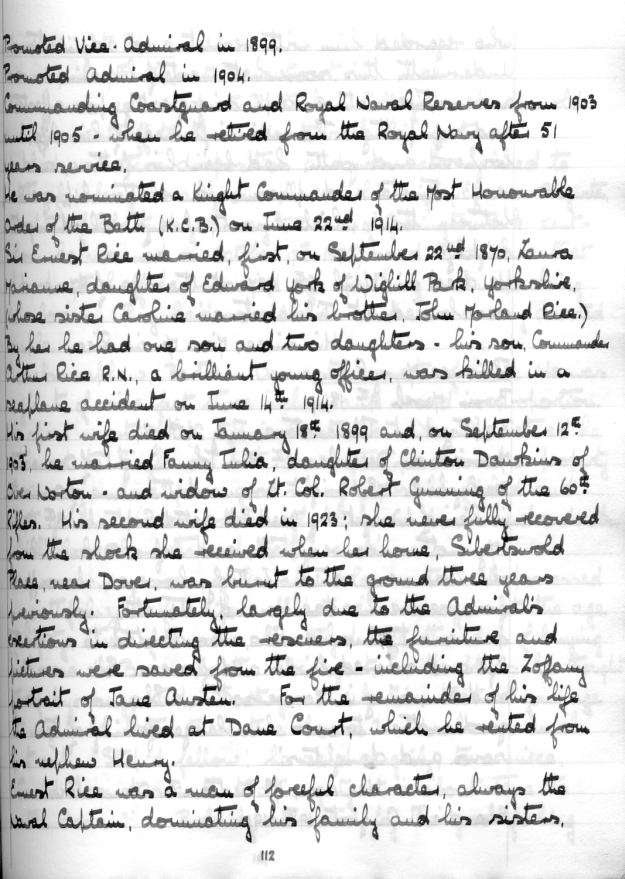 Promoted Vice-Admiral in 1899.
Promoted Admiral in 1904.
Commanding Coastguard and Royal Naval Reserves from 1903
until 1905 - when he retired from the Royal Navy after 51
years service.
He was nominated a Knight Commander of the Most Honourable
Order of the Bath (K.C.B.) on June 22nd 1914.
Sir Ernest Rice married, first, on September 22nd 1870, Laura
Marianne, daughter of Edward York of Wighill Park, Yorkshire,
(whose sister Caroline married his brother, John Morland Rice.)
By her he had one son and two daughters - his son, Commander
Arthur Rice R.N., a brilliant young officer, was killed in a
seaplane accident on June 14th 1914.
His first wife died on January 18th 1899 and, on September 12th
1903, he married Fanny Julia, daughter of Clinton Dawkins of
Over Norton - and widow of Lt. Col. Robert Gunning of the 60th
Rifles. His second wife died in 1923; she never fully recovered
from the shock she received when her home, Sibertswold
Place, near Dover, was burnt to the ground three years
previously. Fortunately, largely due to the Admiral's
exertions in directing the rescuers, the furniture and
pictures were saved from the fire - including the Zoffany
portrait of Jane Austen. For the remainder of his life
the Admiral lived at Dane Court, which he rented from
his nephew Henry.
Ernest Rice was a man of forceful character, always the
Naval Captain, dominating his family and his sisters,
112